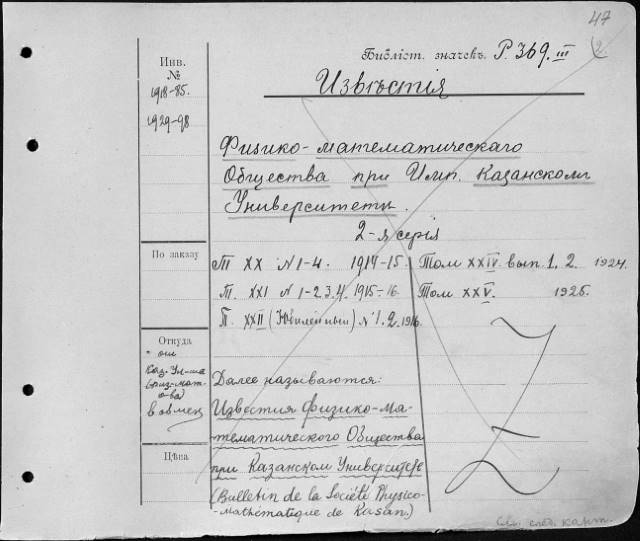 47
2
Библіот. значекъ. Р 369. III
Инв.
№
1918-85.
1929-98
Извѣстія
Физико-математическаго
Общества при Имп. Казанскомъ
Университетѣ.
2-я серія
По заказу
Т XX № 1-4. 1914-15.
Т. XXI № 1-2.3.4. 1915-16
Т. XXII (Юбилейный) № 1.2. 1916
Том XXIV вып. 1. 2. 1924.
Том XXV. 1925.
Откуда
Каз. Ун-та
(физ-мат-
о-ва)
в обмен
Цѣна
Далее называются:
Известия физико-ма-
тематического Общества
при Казанском Университете
(Bulletin de la Société Physico-
Mathématique de Kasan.)
См. след. карт.